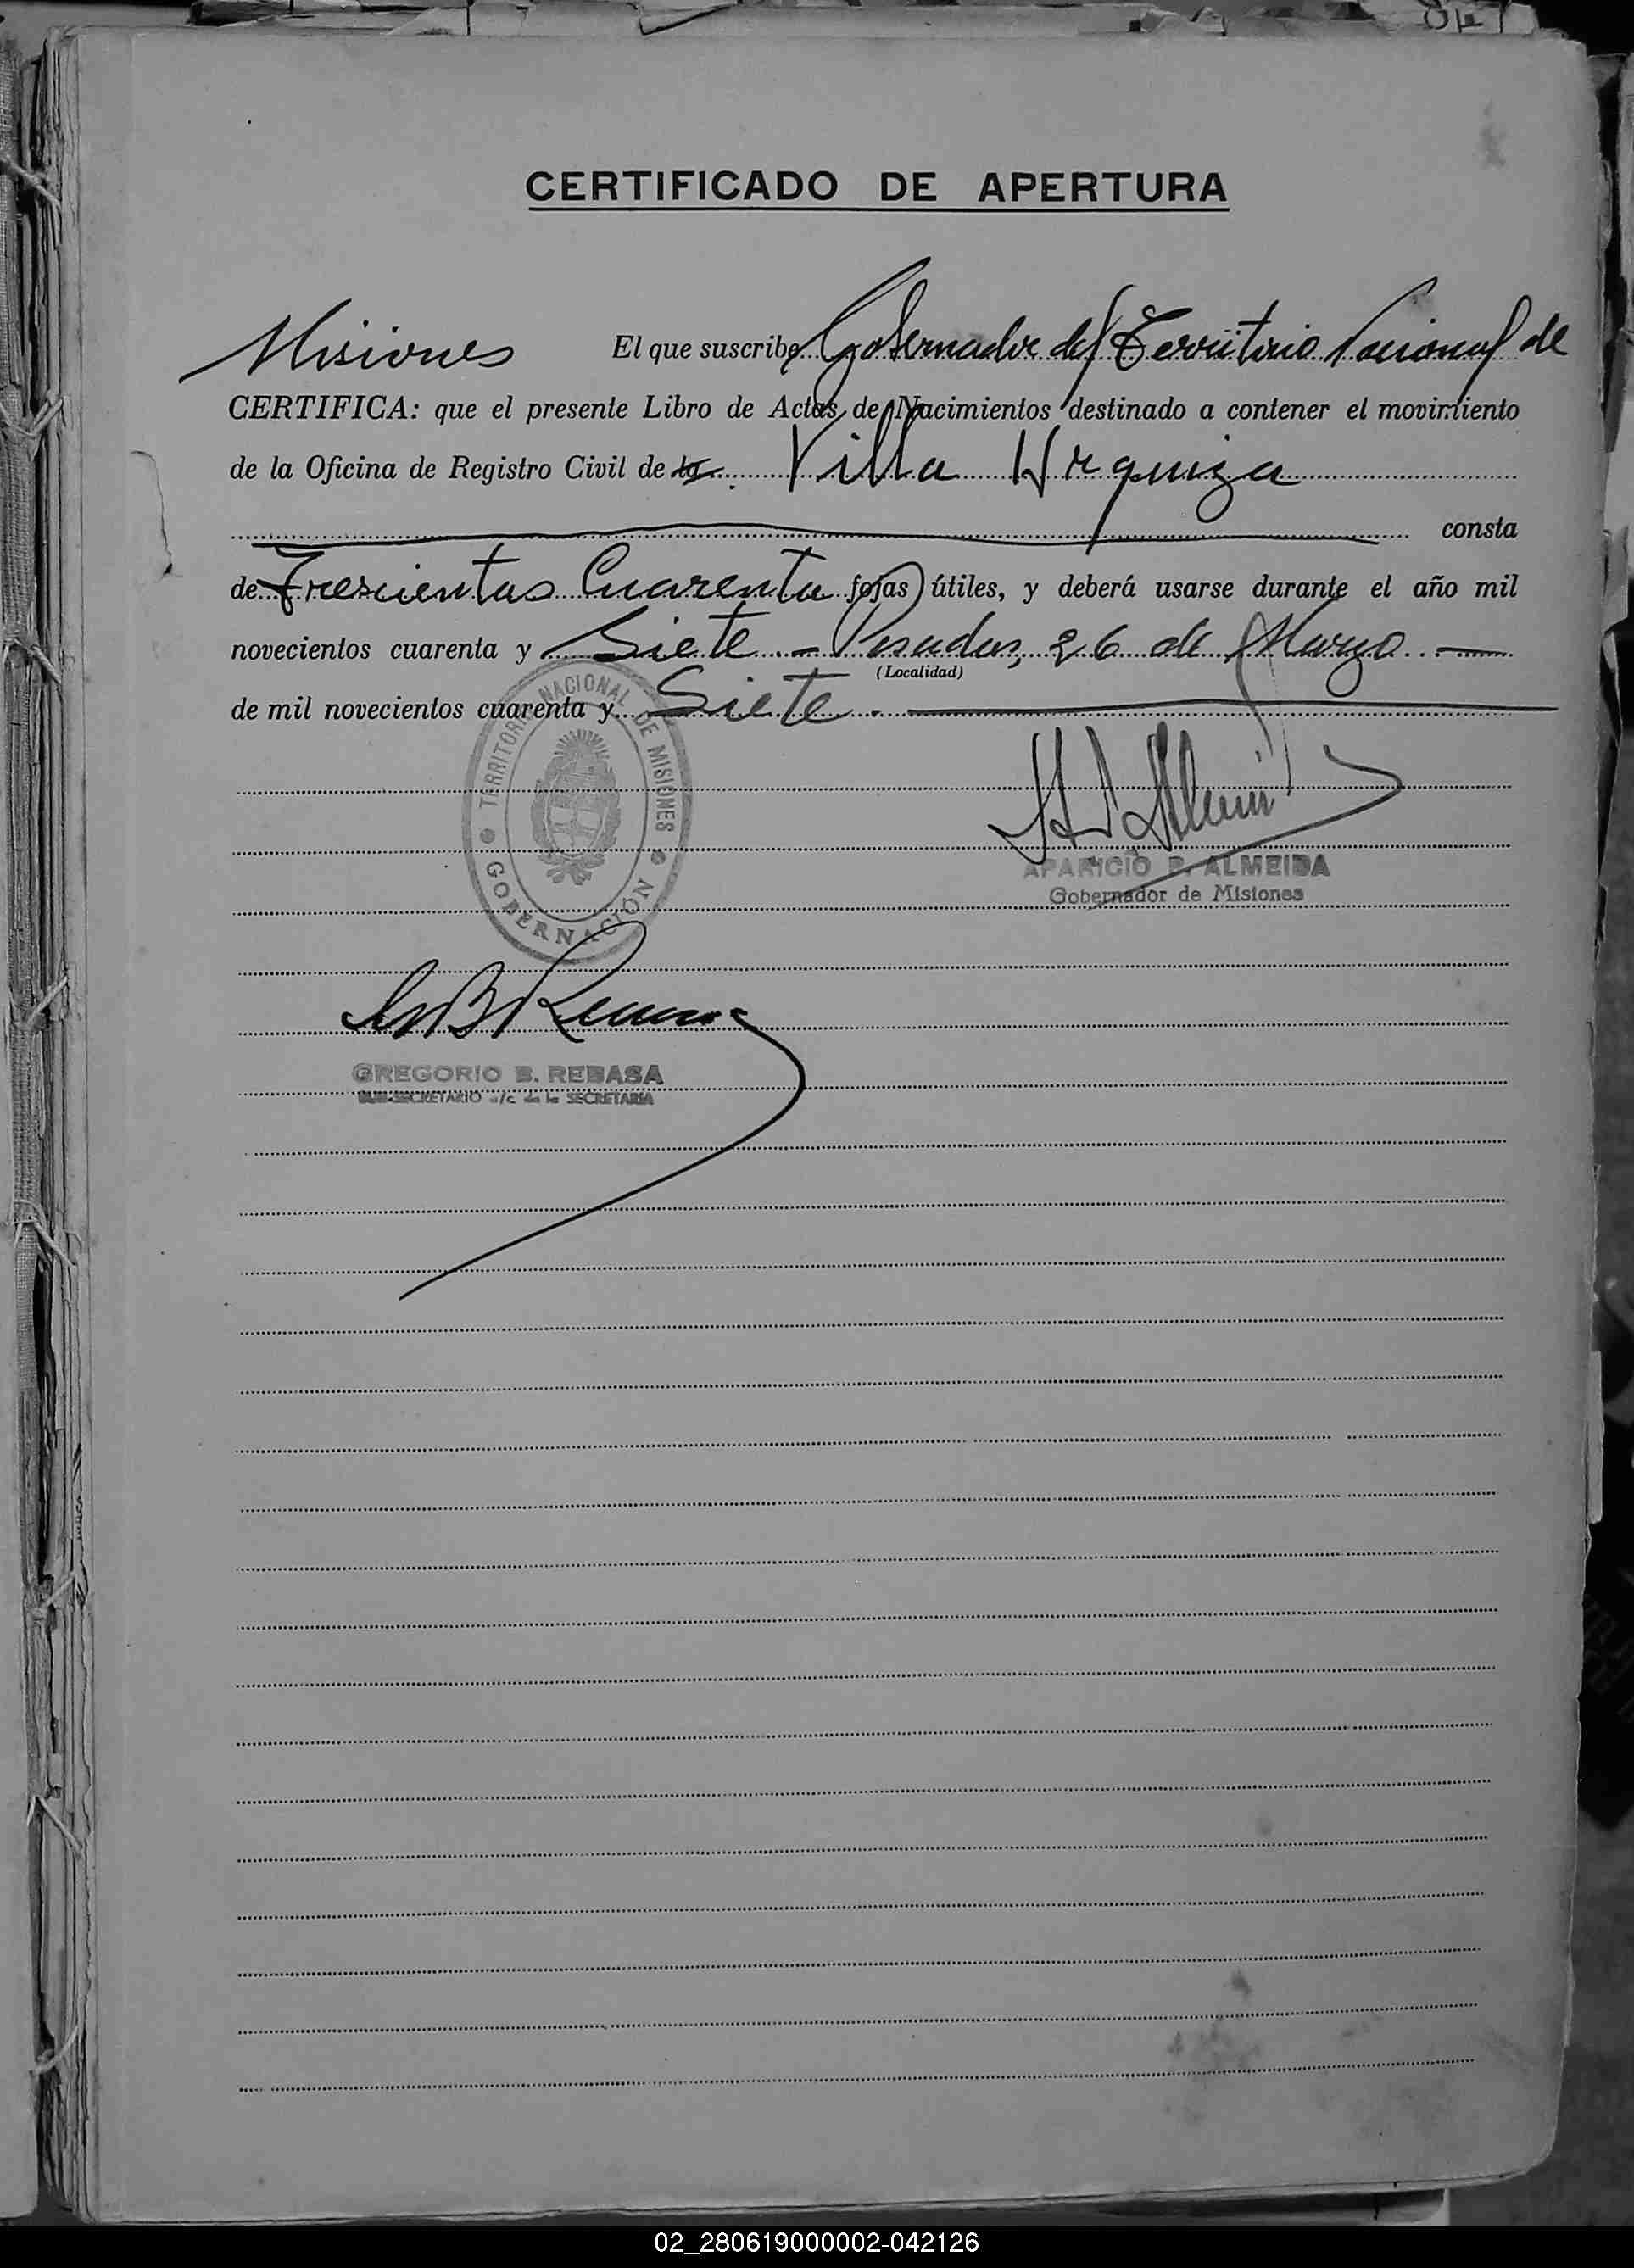 CERTIFICADO DE APERTURA
El que suscribe, Gobernador del Territorio Nacional de
Misiones
CERTIFICA: que el presente Libro de Actas de Nacimientos destinado a contener el movimiento
de la Oficina de Registro Civil de la Villa Urquiza
consta
de Trescientas Cuarenta fojas útiles, y deberá usarse durante el año mil
novecientos cuarenta y Siete.- Posadas, 26 de Marzo.-
(Localidad)
de mil novecientos cuarenta y Siete.-
TERRITORIO NACIONAL DE MISIONES
GOBERNACIÓN
APARICIO P. ALMEIDA
Gobernador de Misiones
GREGORIO B. REBASA
SUB-SECRETARIO a/c de la SECRETARIA
02_280619000002-042126